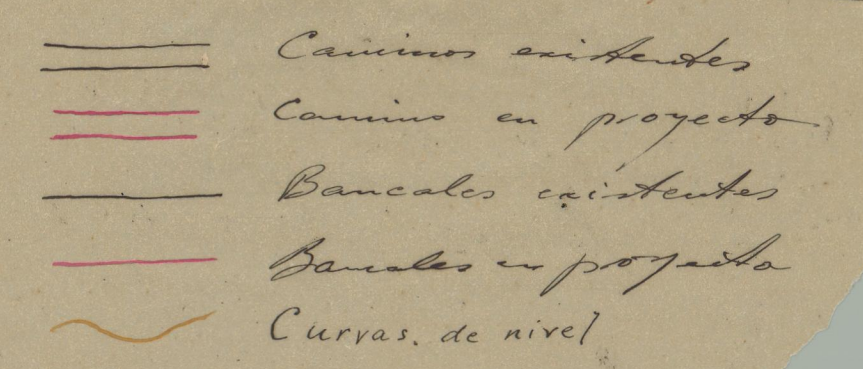 Caminos existentes
Camino en proyecto
Bancales existentes
Bancales en proyecto
Curvas. de nivel